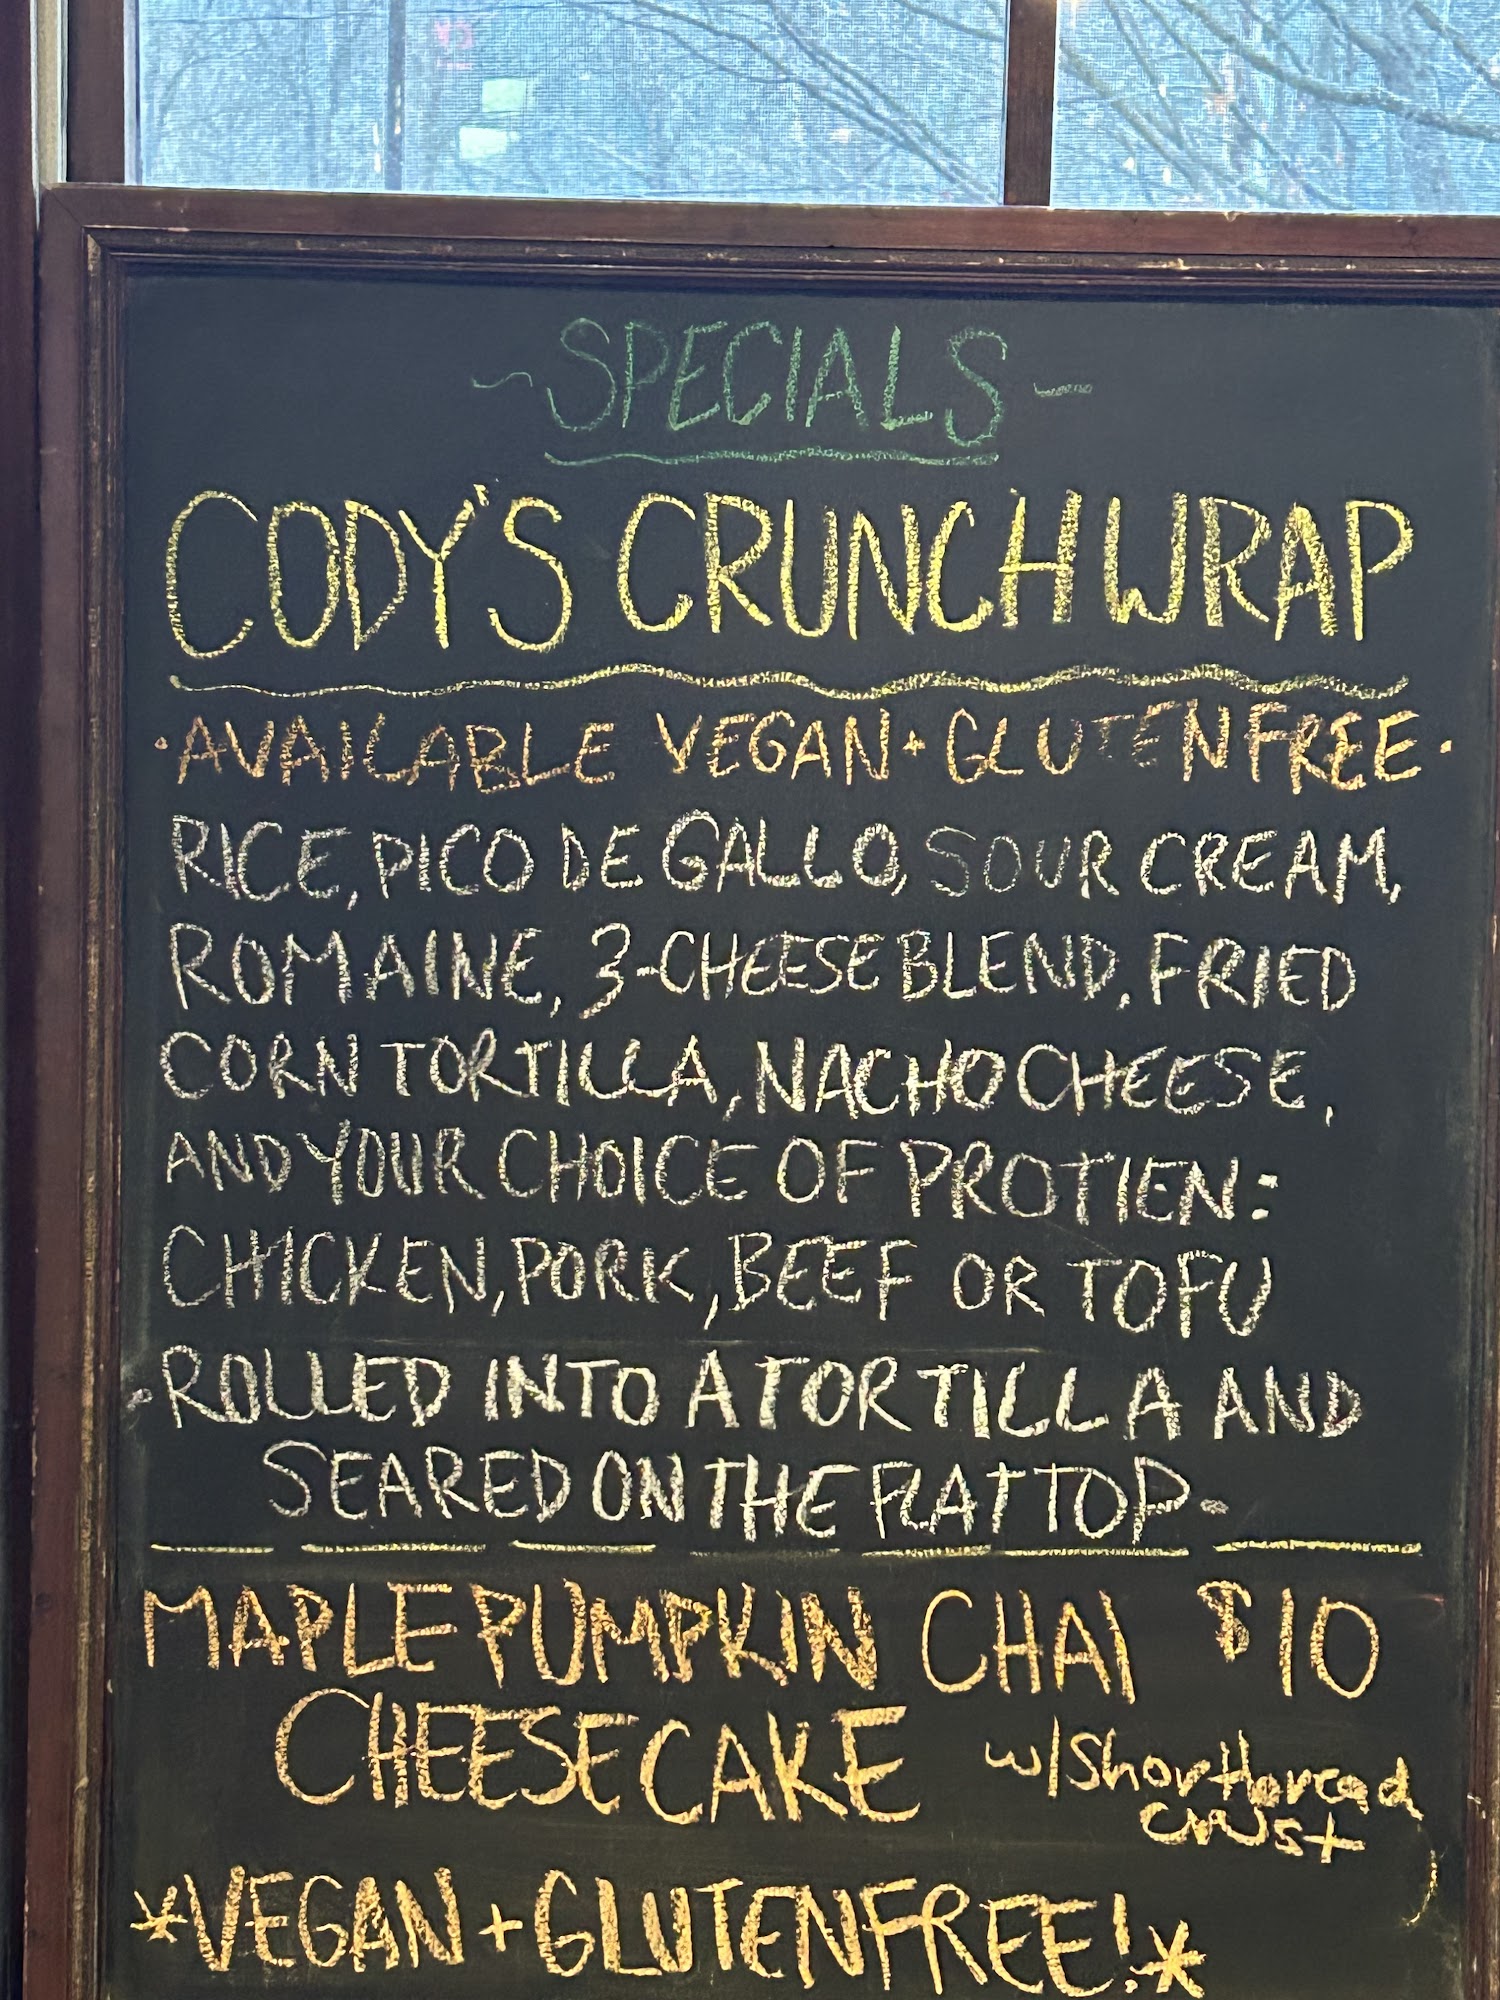 ~SPECIALS~
CODY'S CRUNCHWRAP
·AVAILABLE VEGAN + GLUTENFREE·
RICE, PICO DE GALLO, SOUR CREAM,
ROMAINE, 3-CHEESE BLEND, FRIED
CORN TORTILLA, NACHO CHEESE,
AND YOUR CHOICE OF PROTIEN:
CHICKEN, PORK, BEEF OR TOFU
·ROLLED INTO A TORTILLA AND
SEARED ON THE FLATTOP·
MAPLE PUMPKIN CHAI $10
CHEESECAKE w/Shortbread
crust
*VEGAN + GLUTENFREE!*